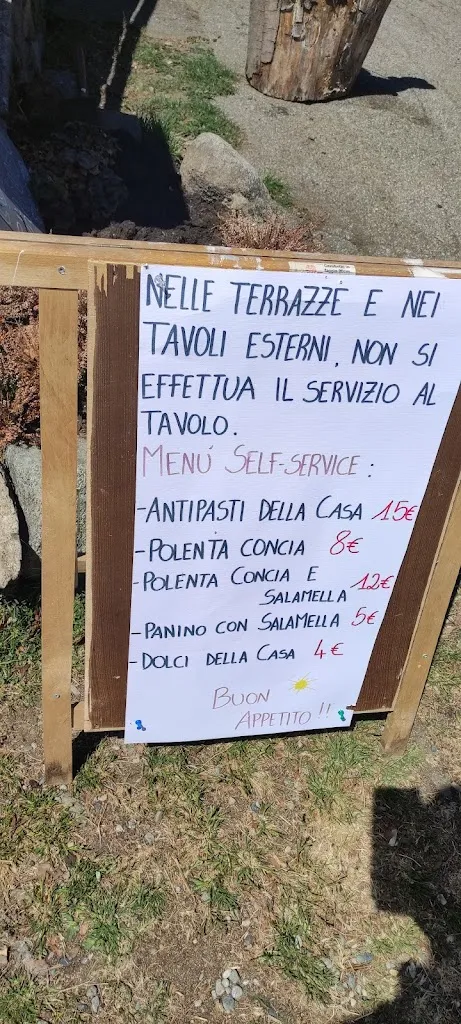 NELLE TERRAZZE E NEI
TAVOLI ESTERNI, NON SI
EFFETTUA IL SERVIZIO AL
TAVOLO.
MENÚ SELF-SERVICE :
-ANTIPASTI DELLA CASA 15€
-POLENTA CONCIA 8€
-POLENTA CONCIA E
SALAMELLA 12€
-PANINO CON SALAMELLA 5€
-DOLCI DELLA CASA 4€
BUON
APPETITO !!